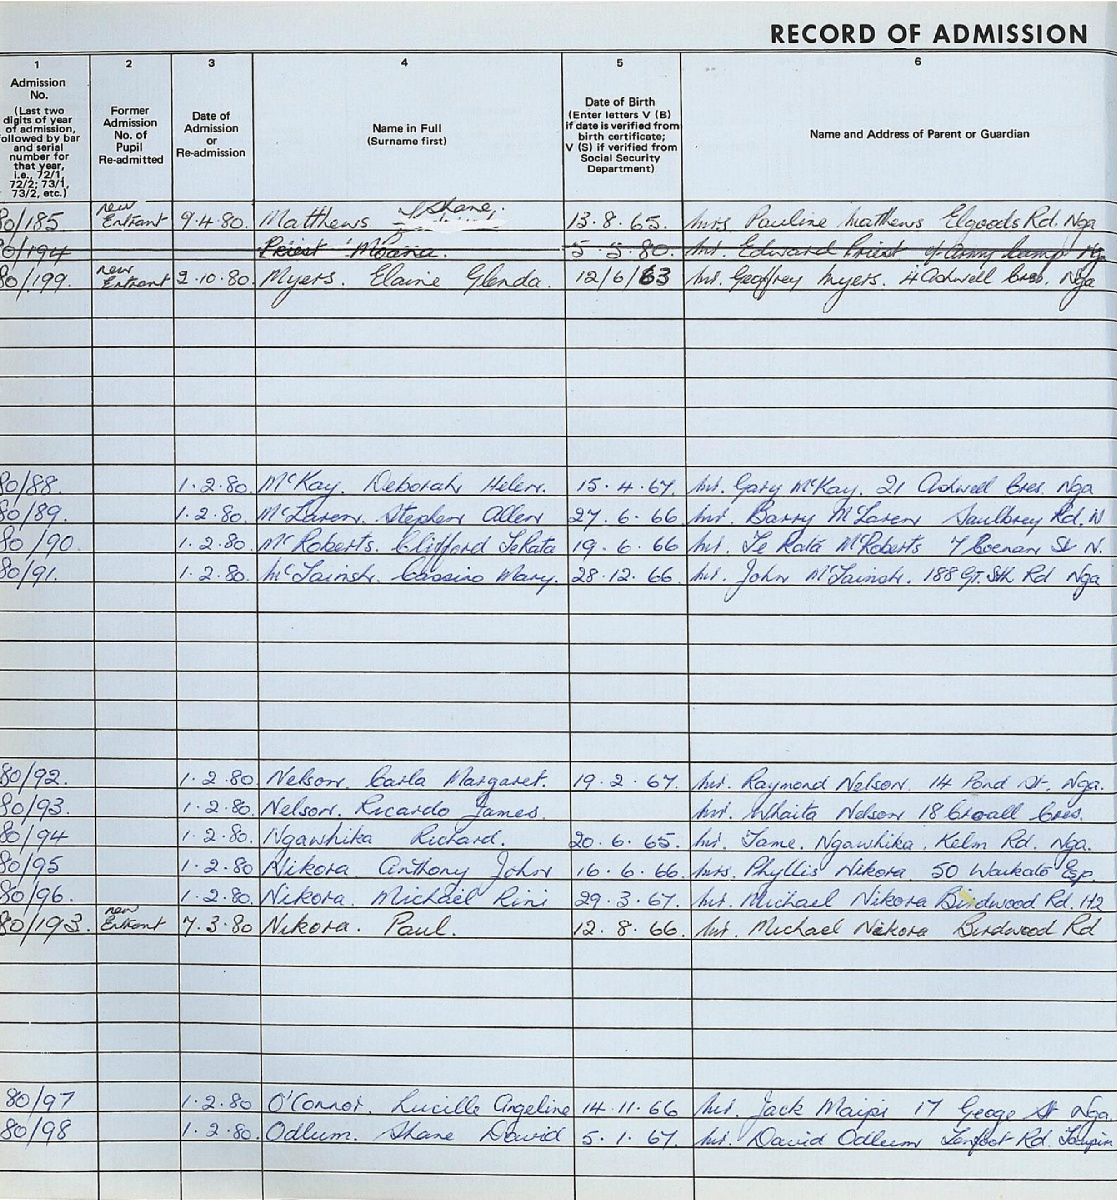 RECORD OF ADMISSION
1 2 3 4 5 6
Admission No.
(Last two digits of year of admission, followed by bar and serial number for that year, i.e., 72/1, 72/2; 73/1, 73/2, etc.)
Former Admission No. of Pupil Re-admitted
Date of Admission or Re-admission
Name in Full
(Surname first)
Date of Birth
(Enter letters V (B) if date is verified from birth certificate; V (S) if verified from Social Security Department)
Name and Address of Parent or Guardian
80/185 new Entrant 9.4.80. Matthews Shane. 13.8.65. Mrs. Pauline Matthews Elgoods Rd. Nga
80/194 Priest Moana. 5 5 80. Mr. Edward Priest Army Camp
80/199. new Entrant 2.10.80. Myers. Elaine Glenda. 12/6/63 Mr. Geoffrey Myers. 4 Cres. Nga
80/88. 1.2.80. McKay. Deborah Helen. 15.4.67. Mr. Gary McKay. 21 Cres. Nga
80/89. 1.2.80. McLaren. Stephen Allen 27.6.66 Mr. Barry McLaren Rd. N
80/90. 1.2.80. McRoberts. Clifford TeRata 19.6.66 Mr. Te Rata McRoberts 7 St N.
80/91. 1.2.80. Mary. 28.12.66. Mr. John 188 Gt. Sth Rd Nga
80/92. 1.2.80 Nelson. Carla Margaret. 19.2.67. Mr. Raymond Nelson. 14 Pond St. Nga.
80/93. 1.2.80. Nelson. Ricardo James. Mr. Whaita Nelson 18 Croall Cres.
80/94 1.2.80. Ngawhika Richard. 20.6.65. Mr. Tame. Ngawhika. Kelm Rd. Nga.
80/95 1.2.80. Nikora Anthony John 16.6.66. Mrs. Phyllis Nikora. 50 Waikato Esp
80/96. 1.2.80. Nikora. Michael Rini 29.3.67. Mr. Michael Nikora Birdwood Rd. H2
80/193. new Entrant 7.3.80 Nikora. Paul. 12.8.66. Mr. Michael Nikora Birdwood Rd
80/97 1.2.80 O'Connor. Lucille Angeline 14.11.66 Mr. Jack Maipi 17 George St Nga.
80/98 1.2.80. Odlum. Shane David 5.1.67. Mr. David Odlum Rd.